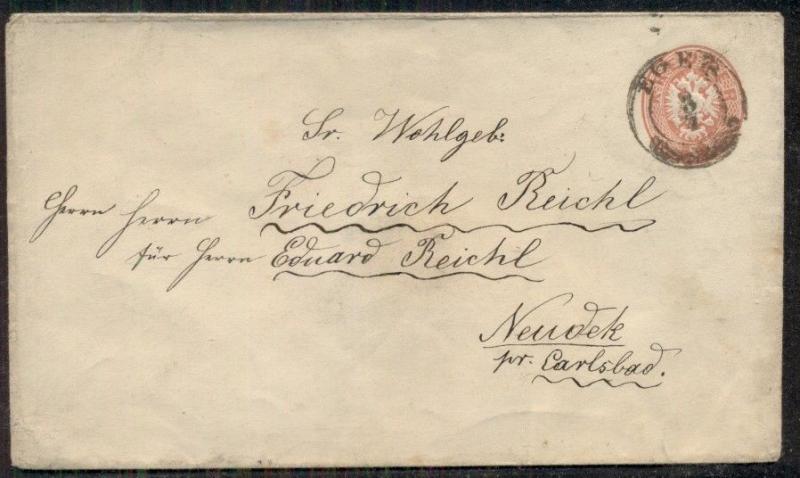 EGER
3
Sr. Wohlgeb:
Herrn Herrn Friedrich Reichl
für Herrn Eduard Reichl
Neudek
pr. Carlsbad.